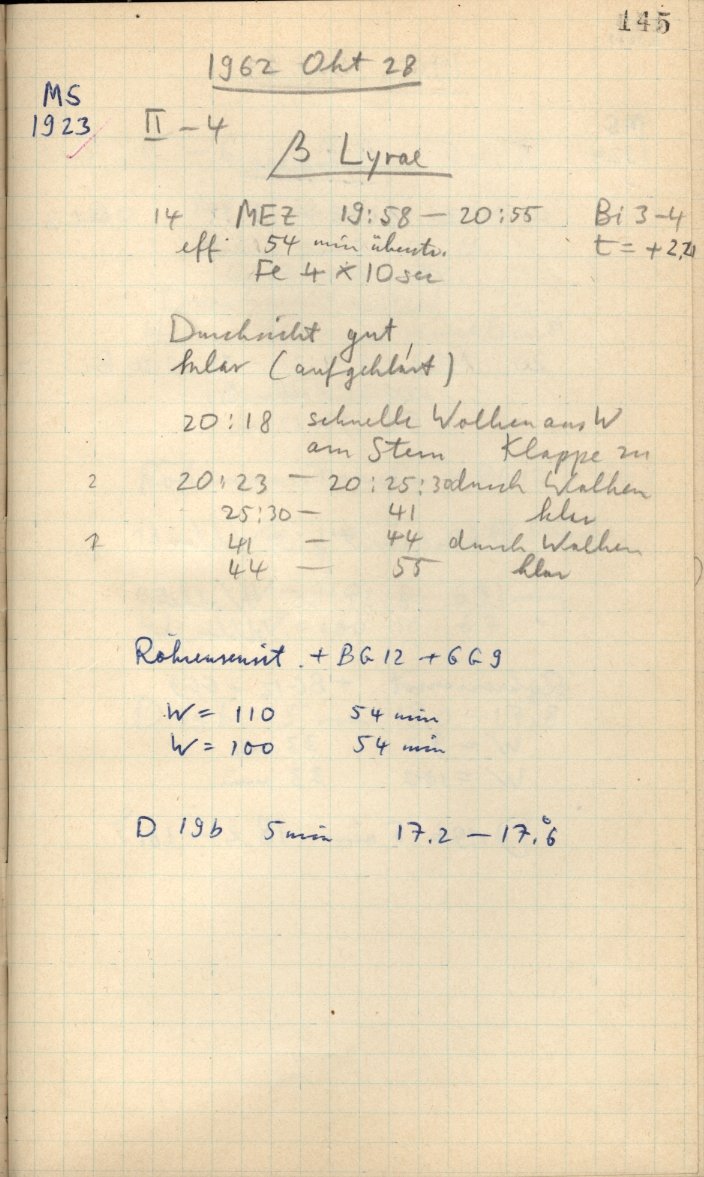 145
1962 Okt 28
MS
1923
II – 4
β Lyrae
14 MEZ 19:58 – 20:55 Bi 3–4
eff 54 min überstr. t = +2,2
Fe 4 × 10 sec
Durchsicht gut,
klar (aufgeklärt)
20:18 schnelle Wolken aus W
am Stern Klappe zu
2 20:23 – 20:25:30 durch Wolken
25:30 – 41 klar
1 41 – 44 durch Wolken
44 – 55 klar
Röhrensensit. + BG 12 + GG 9
W = 110 54 min
W = 100 54 min
D 19b 5 min 17.2 – 17.°6